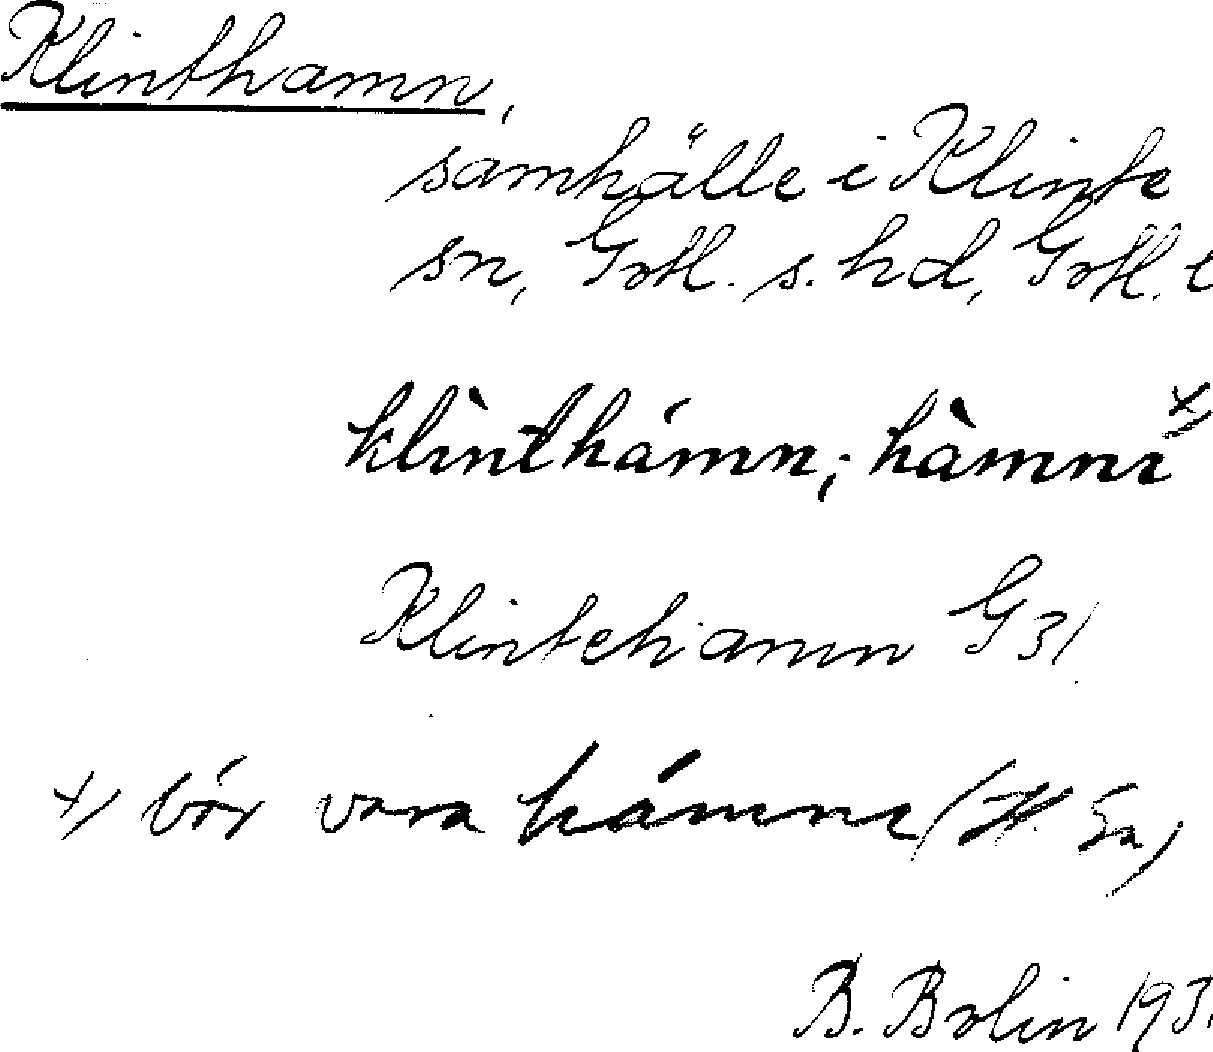 Klinthamn,
samhälle i Klinte
sn, Gotl. s. hd, Gotl. l
klı̀nthámn; hàmnı x)
Klintehamn G 31
x) bör vara hámnı (H. Gn)
B. Bolin 193